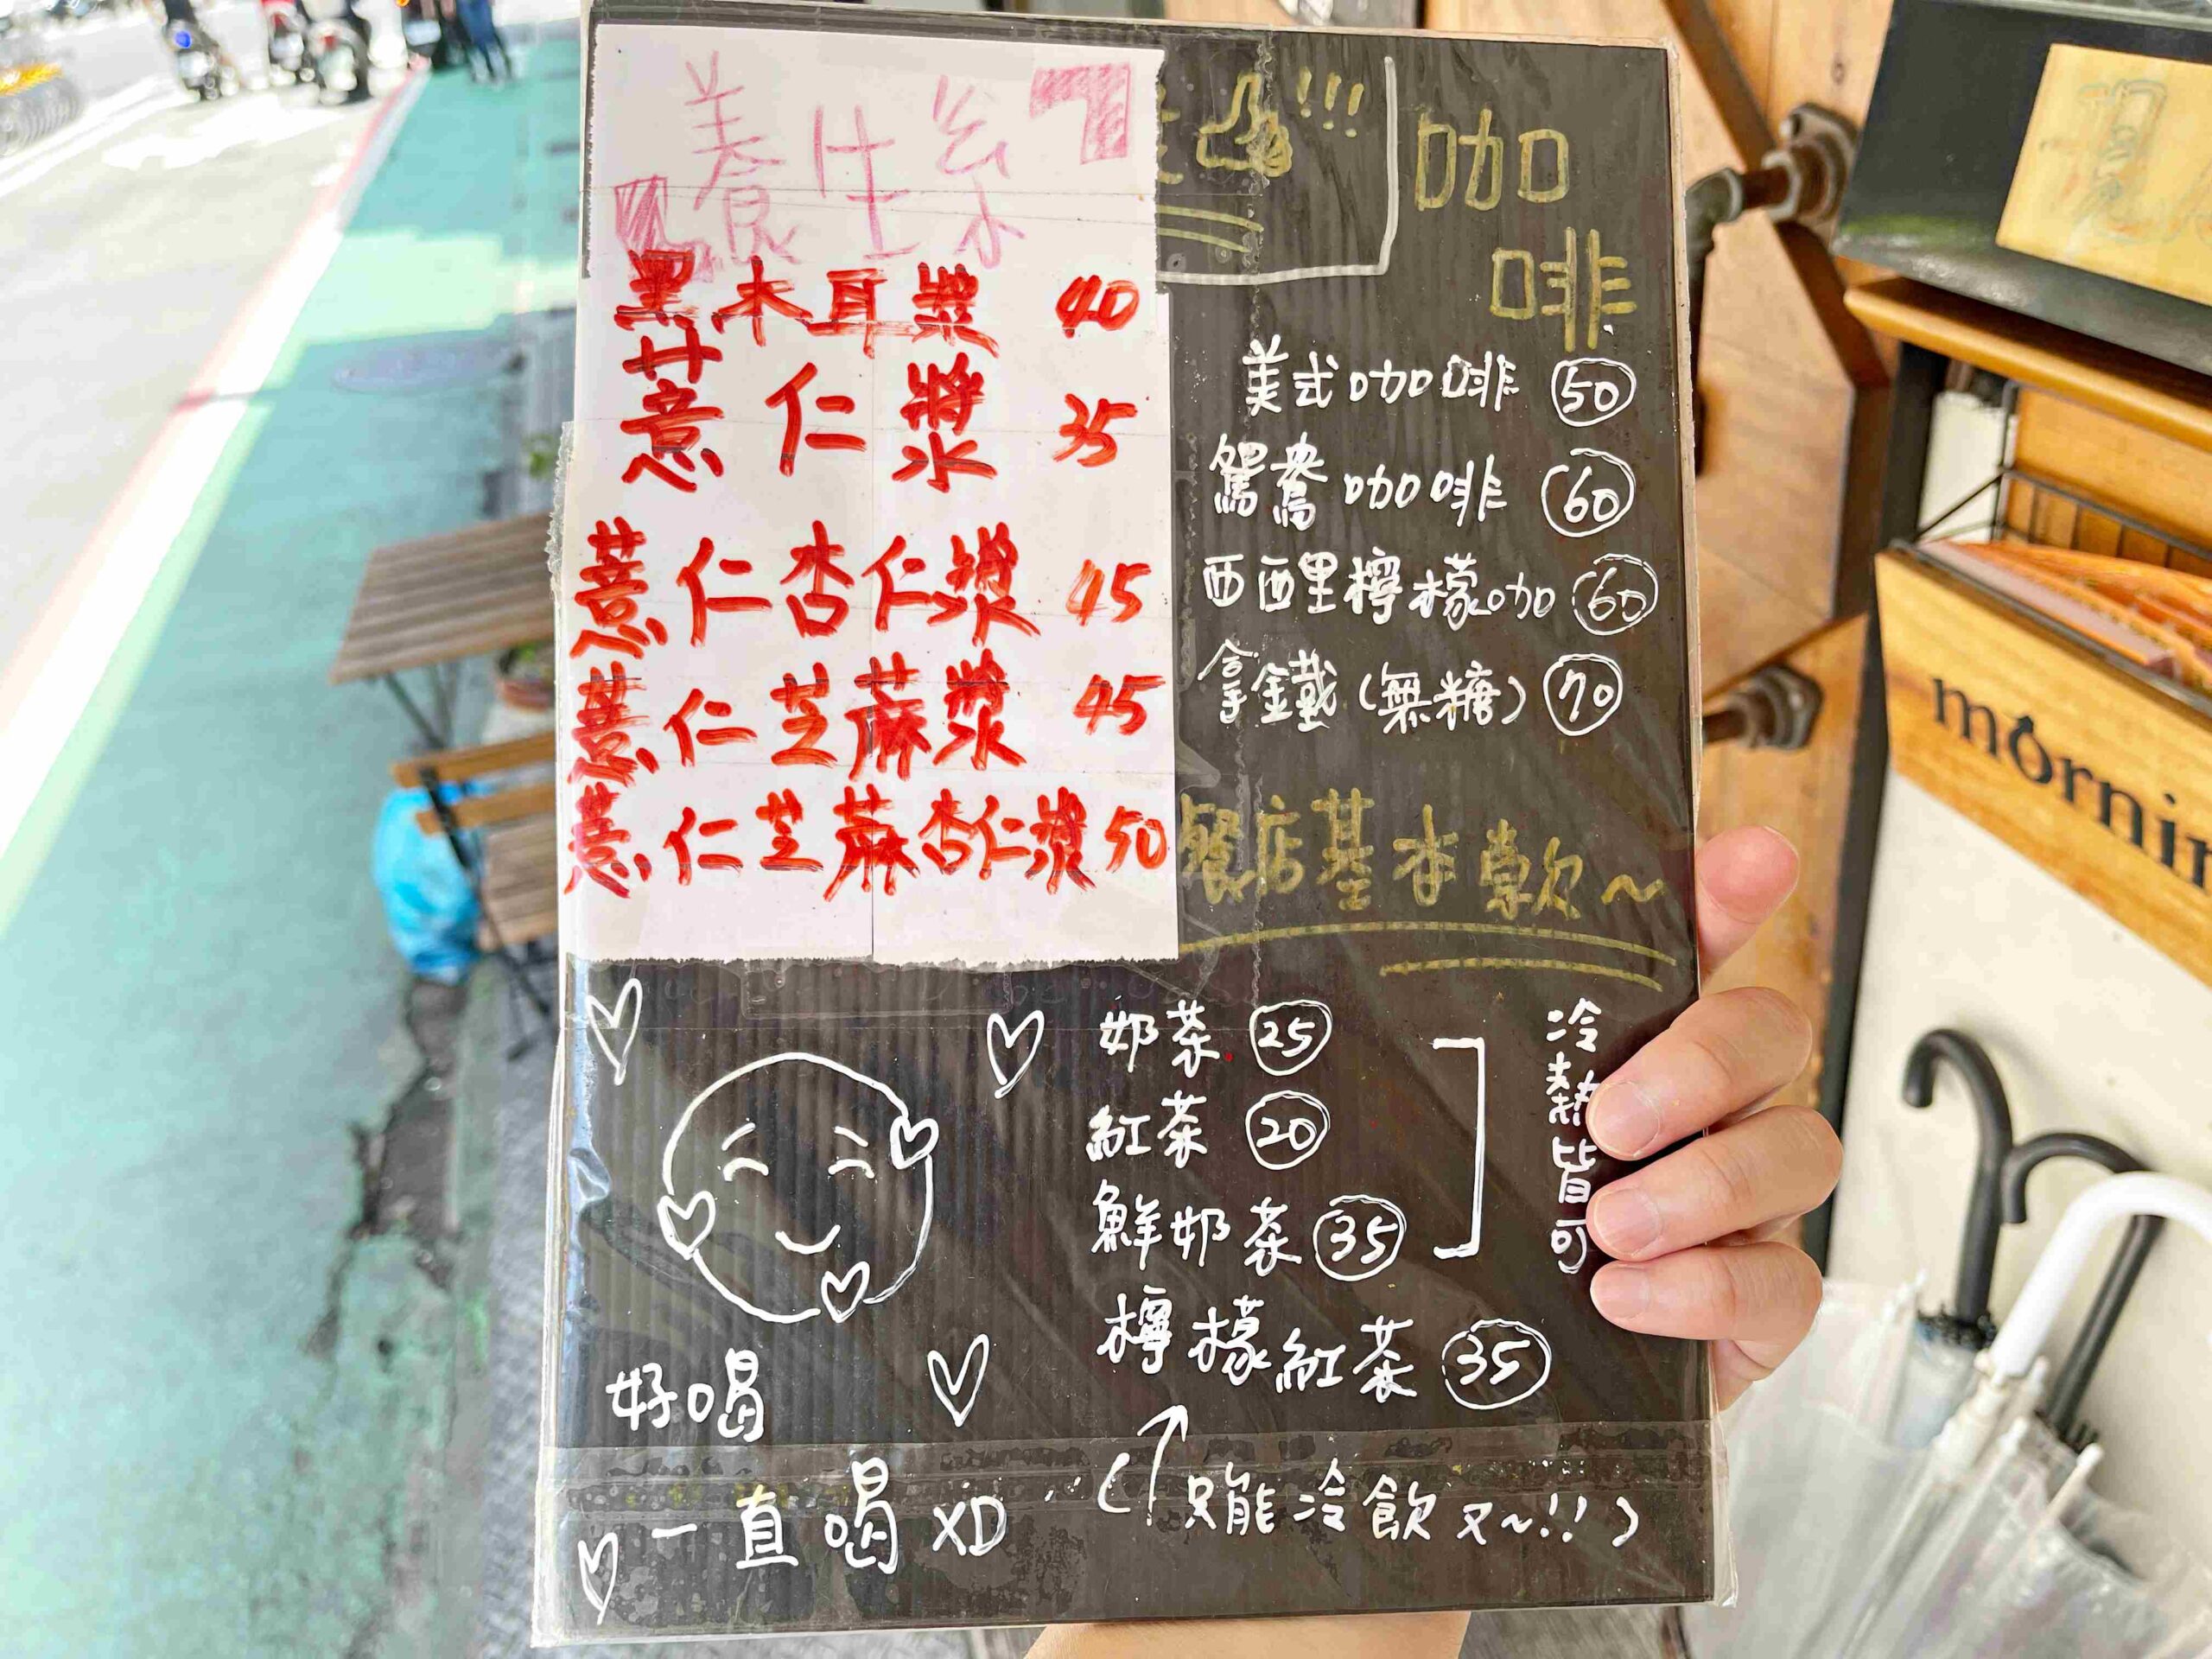 養生系
黑木耳漿 40
薏仁漿 35
薏仁杏仁漿 45
薏仁芝蔴漿 45
薏仁芝蔴杏仁漿 50
!!!
咖啡
美式咖啡 50
鴛鴦咖啡 60
西西里檸檬咖 60
拿鐵(無糖) 70
餐店基本款~
奶茶 25
紅茶 20
鮮奶茶 35
冷熱皆可
檸檬紅茶 35
(只能冷飲ㄡ~!!)
好喝
一直喝 XD
mornin